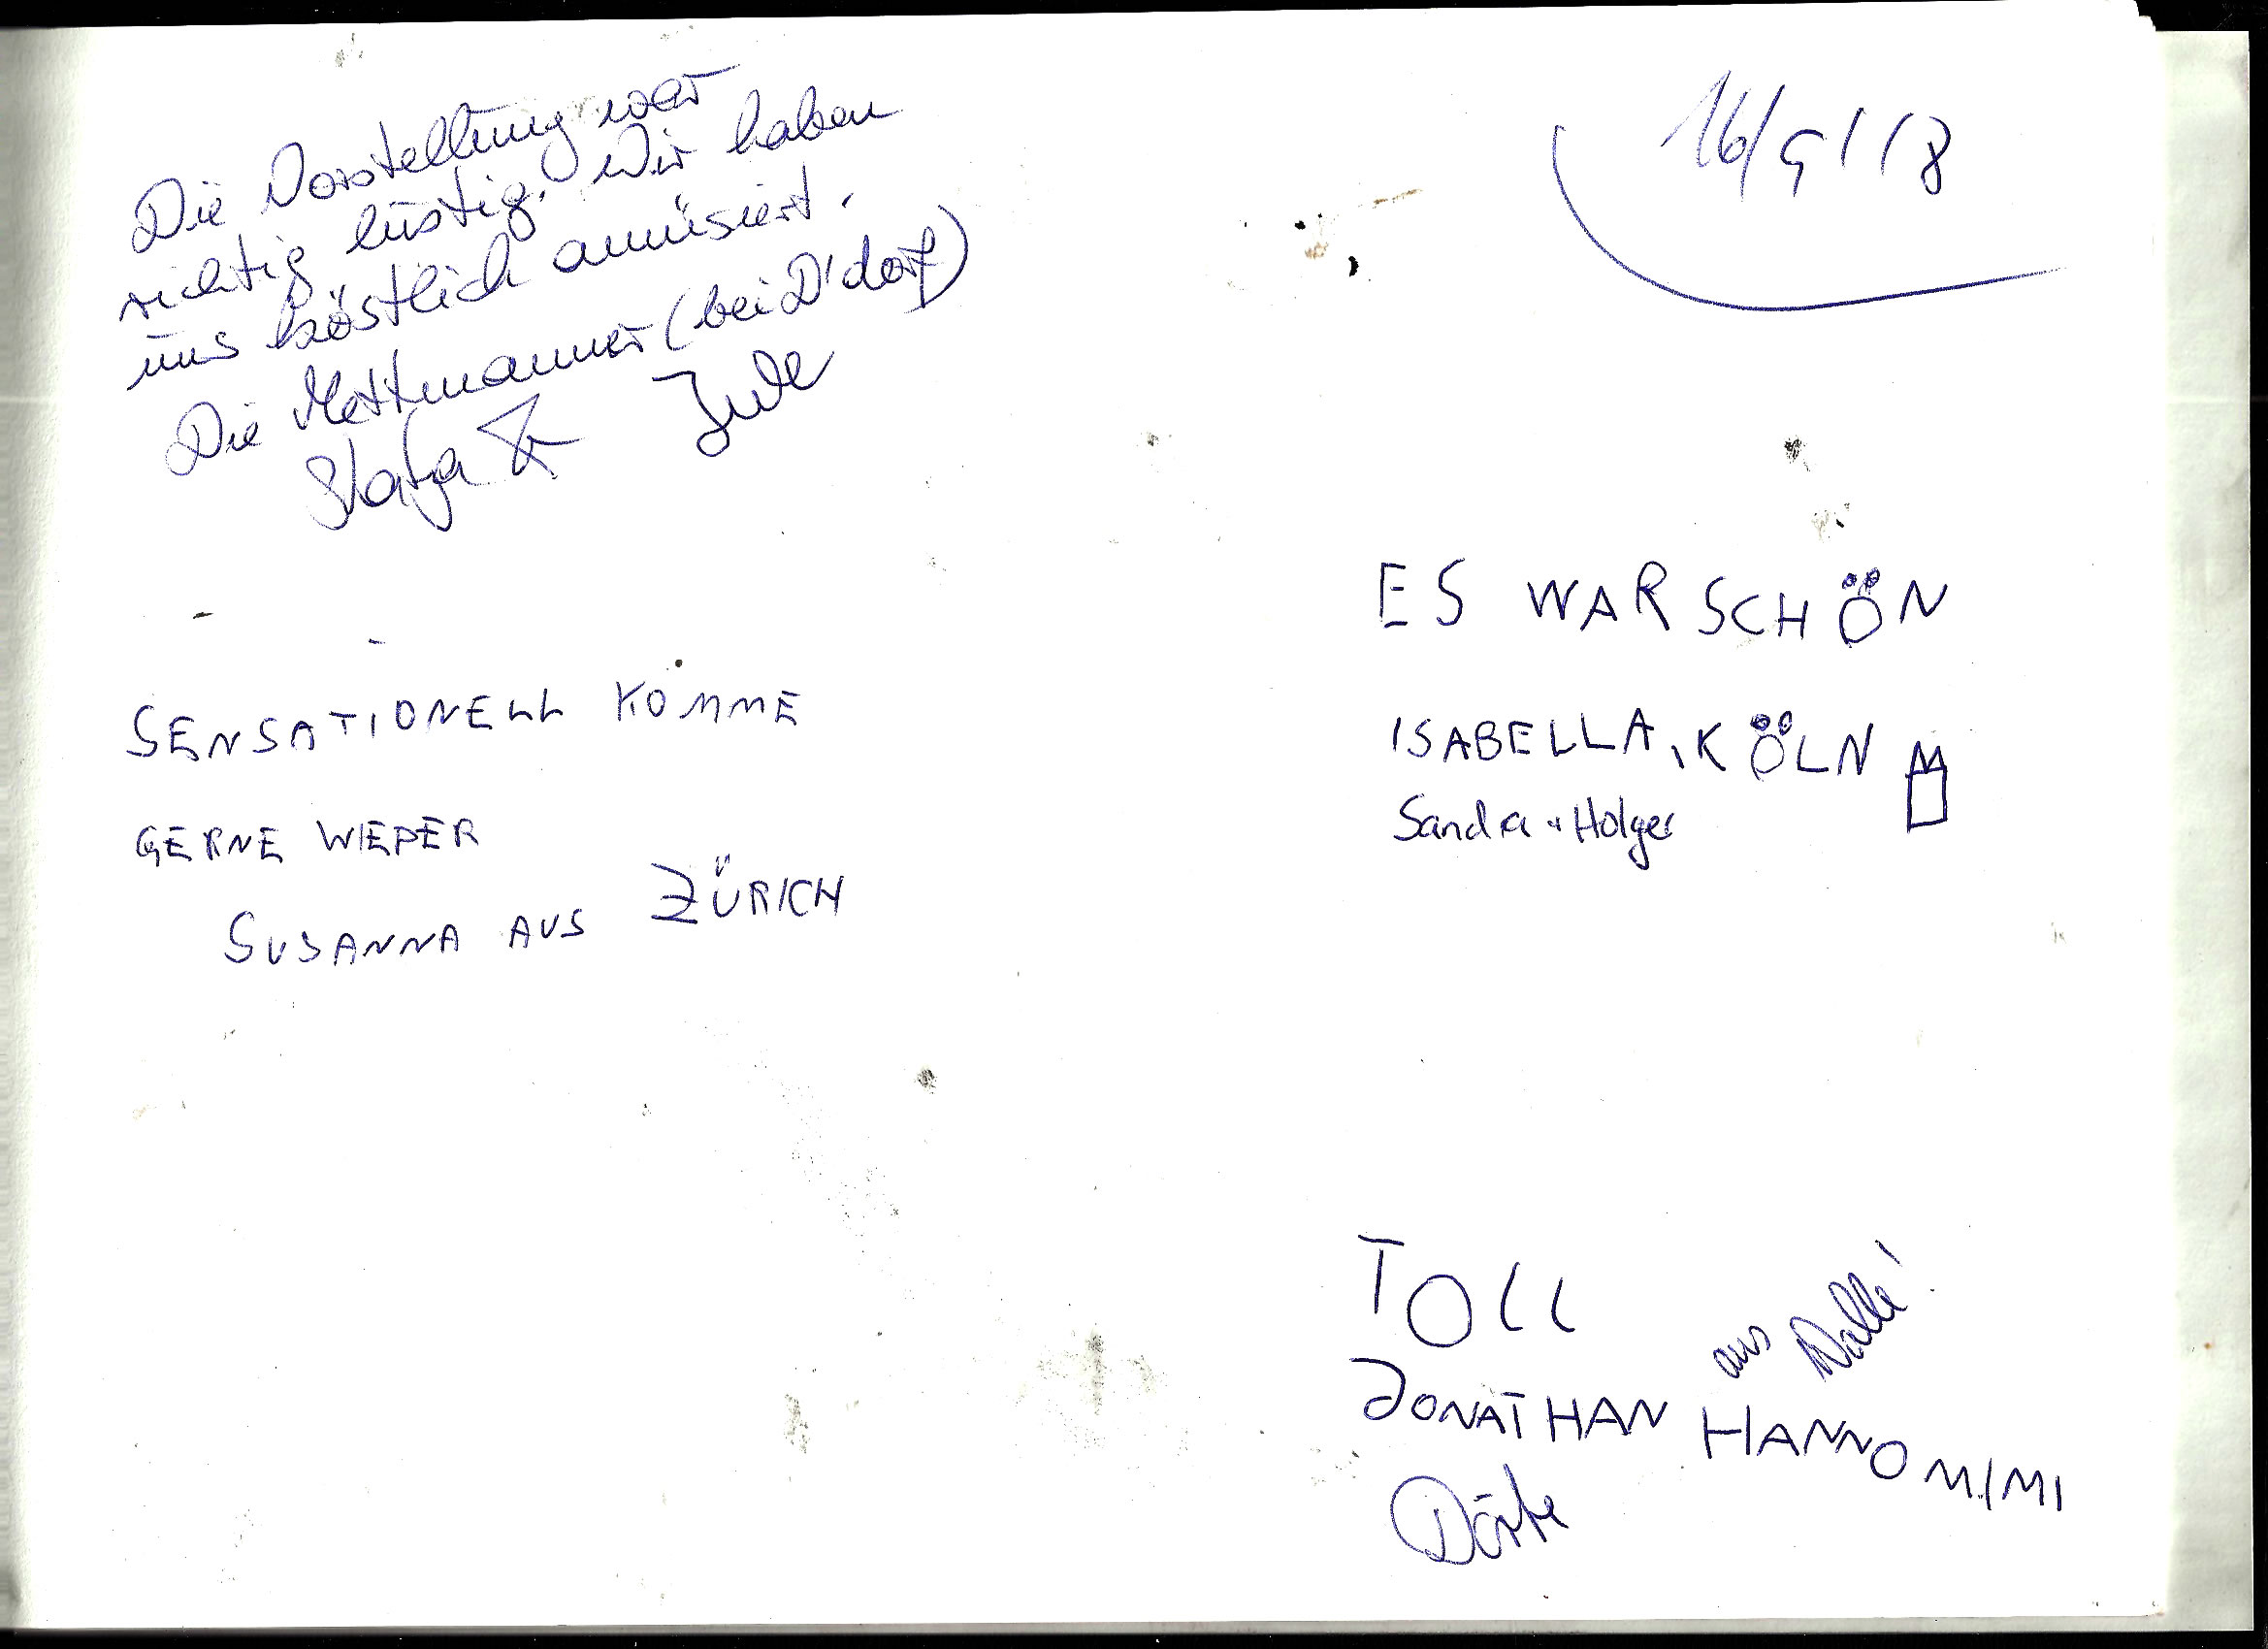 16/9/18
Die Vorstellung war
richtig lustig. Wir haben
uns köstlich amüsiert.
Die Mettmanner (bei D'dorf)
&
SENSATIONELL KOMME
GERNE WIEDER
SUSANNA AUS ZÜRICH
ES WAR SCHÖN
ISABELLA, KÖLN
Sandra + Holger
TOLL
aus Halle!
JONATHAN HANNO MIMI
Dörte